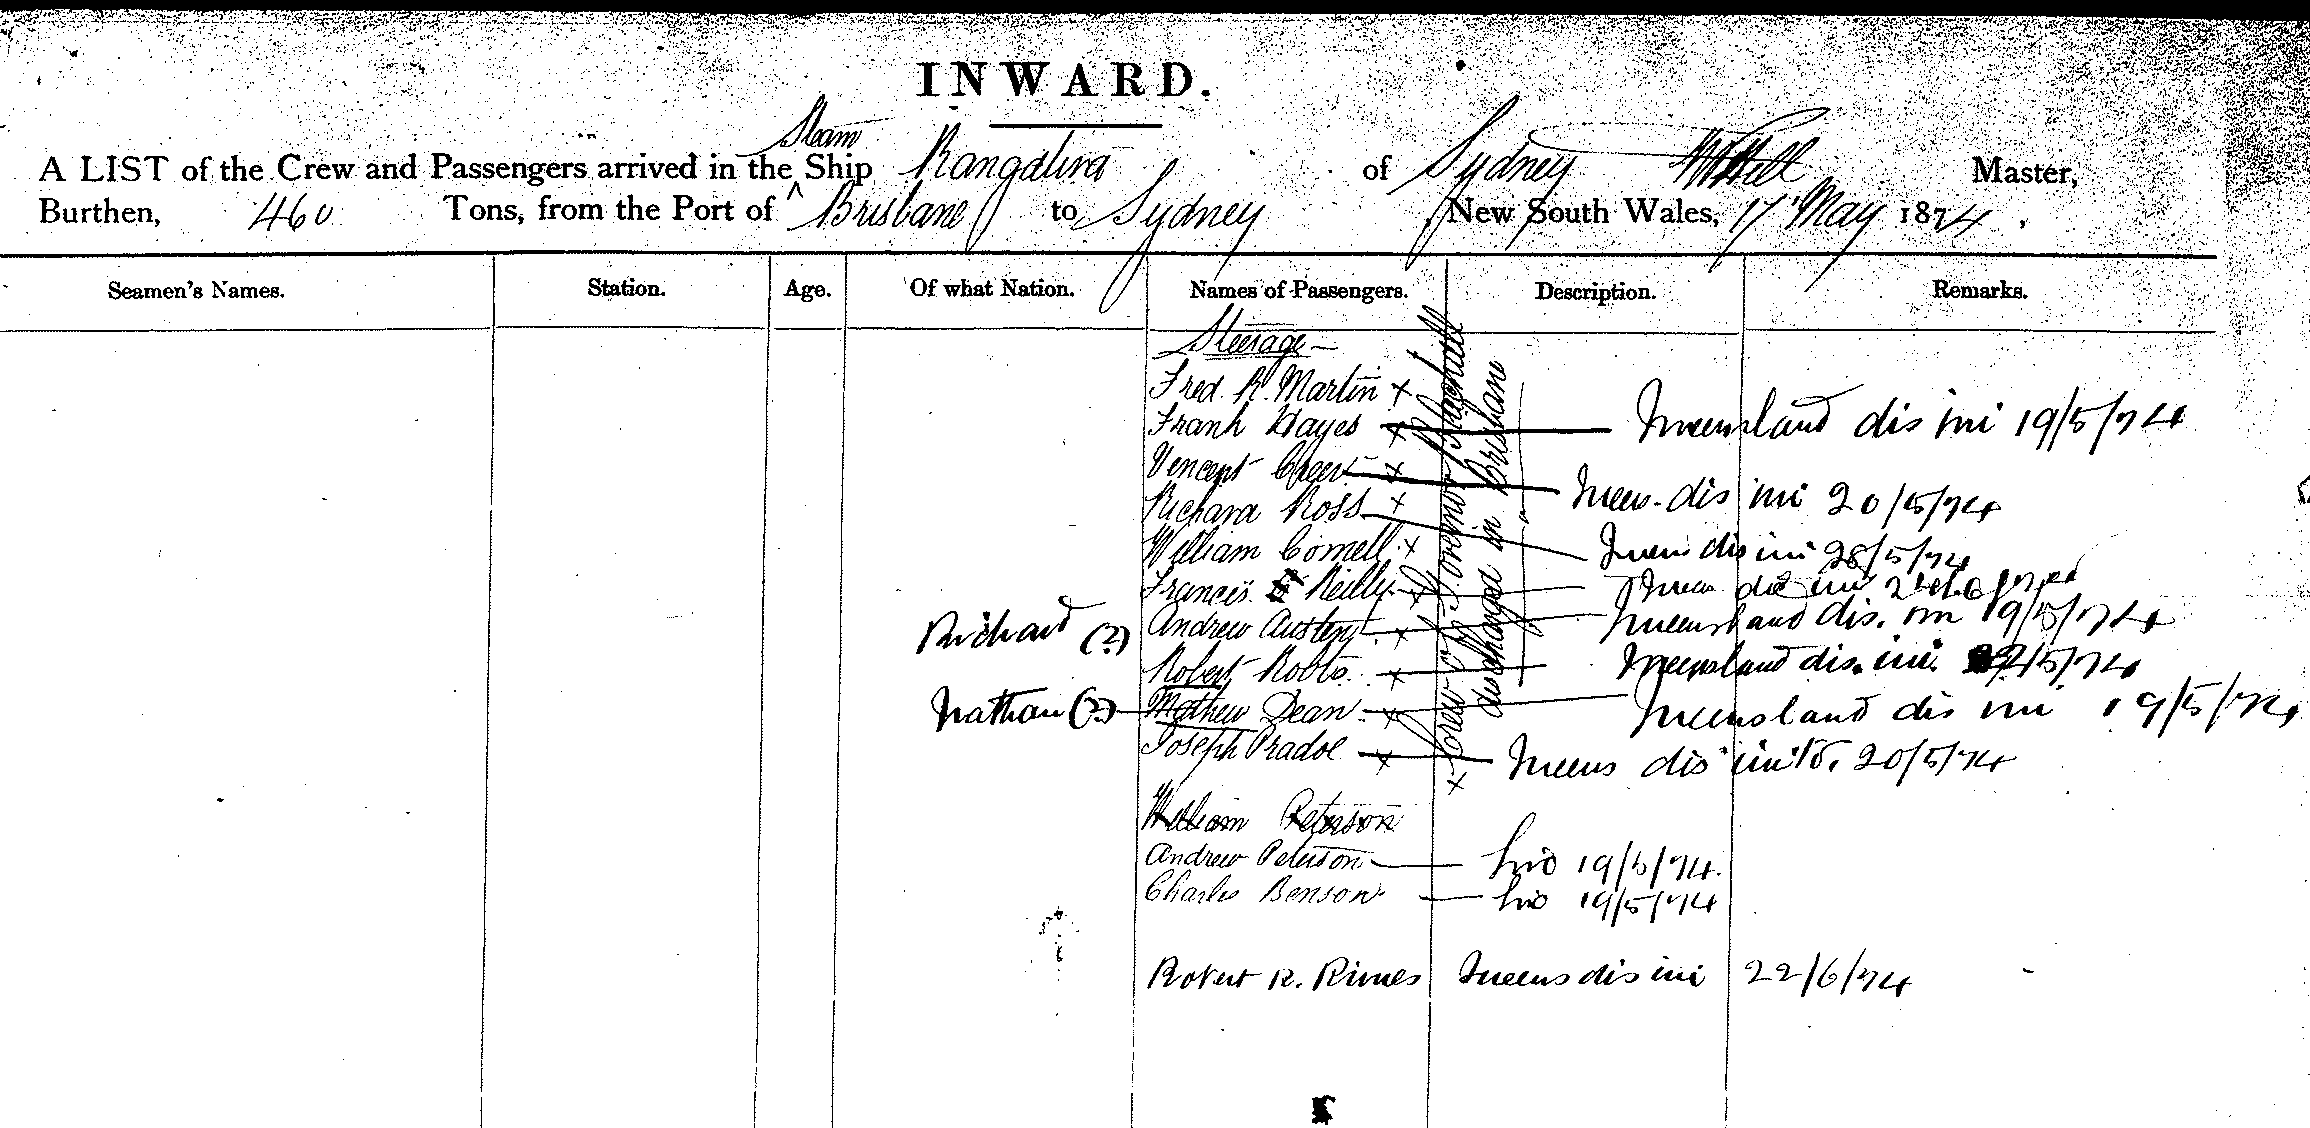 INWARD.
Steam
A LIST of the Crew and Passengers arrived in the Ship Rangatira of Sydney Master,
Burthen, 460 Tons, from the Port of ^ Brisbane to Sydney New South Wales, 17 May 1874.
Seamen's Names. Station. Age. Of what Nation. Names of Passengers. Description. Remarks.
Steerage
Fred. R. Martin x
Frank Hayes x Queensland dis 19/5/74
Vincent x Queen. dis 20/5/74
Richard Ross x Queen dis 28/5/74
William Cornell x
Francis Reilly x
Richard (?) Andrew Austen x Queensland dis. 19/5/74
Robert Robts x Queensland dis. /5/74
Nathan (?) Mathew Dean x Queensland dis 19/5/74
Joseph Pradoe x Queens dis 20/5/74
x Crew of discharged in Brisbane
William Peterson
Andrew Peterson 19/5/74.
Charles Benson 19/5/74
Robert R. Rimes Queens dis 22/6/74